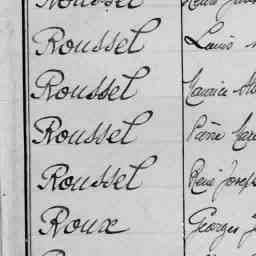 Roussel
Roussel Louis
Roussel Maurice
Roussel Pierre
Roussel René Joseph
Roux Georges